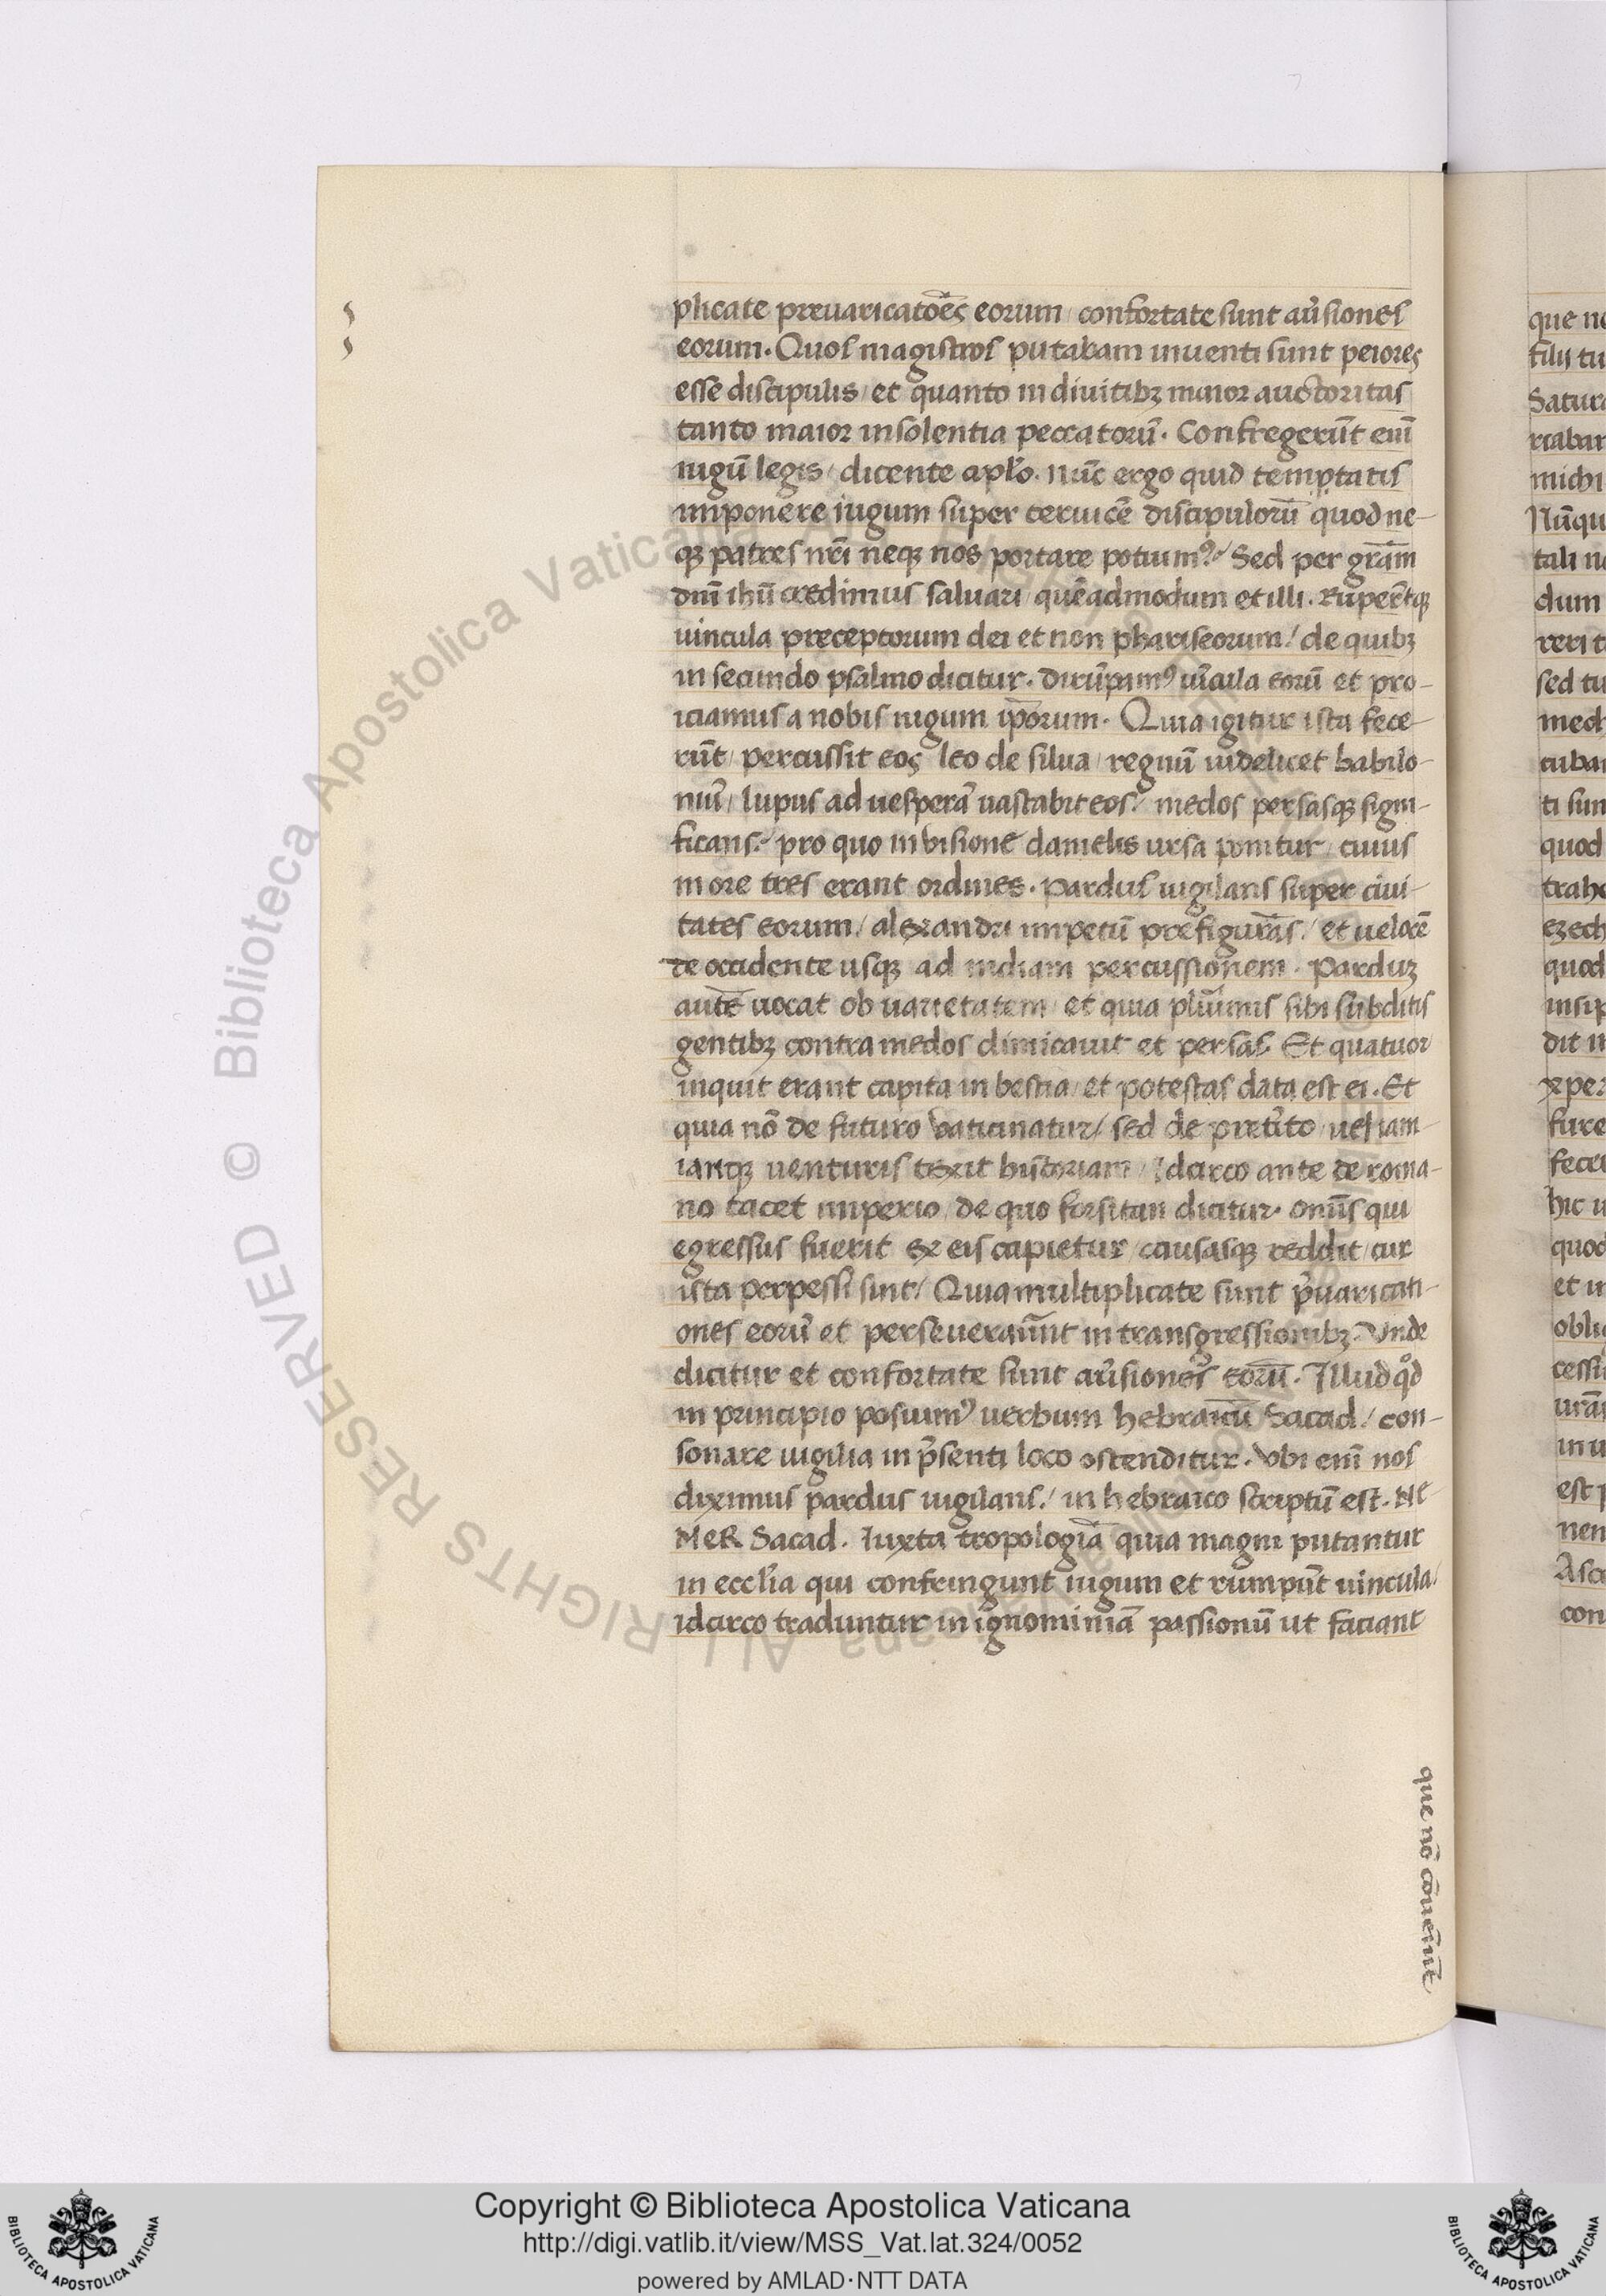 plicate preuaricatões eorum / confortate sunt au̾siones
eorum. Quos magistros putabam inuenti sunt peiores
esse discipulis / et quanto in diuitibꝫ maior auctoritas
tanto maior insolentia peccatorū. Confregerūt eni̅
iugū legis / dicente apl̅o. nūc ergo quid temptatis
imponere iugum super ceruicē discipulorū quod ne-
qꝫ patres nr̅i neqꝫ nos portare potuimꝰ? Sed per gra̅m
dni̅ ihū credimus saluari / quēadmodum et illi. Rūperētqꝫ
uincula preceptorum dei et non phariseorum / de quibꝫ
in secundo psalmo dicitur. Dirūpamꝰ uīcula eorū et pro-
iciamus a nobis iugum ip̅orum. Quia igitur ista fece-
rūt / percussit eos leo de silua / regnū uidelicet babilo-
niū / lupus ad uesperā uastabit eos / medos persasqꝫ signi-
ficans / pro quo in visione danielis ursa ponitur / cuius
in ore tres erant ordines. Pardus uigilans super ciui-
tates eorum / alexandri impetū prefigurās / et uelocē
de occidente usqꝫ ad indiam percussionem. Parduꝫ
autē uocat ob uarietatem / et quia plurimis sibi subditis
gentibꝫ contra medos dimicauit et persas. Et quatuor
inquit erant capita in bestia / et potestas data est ei. Et
quia nō de futuro vaticinatur / sed de pret̾ito
iamqꝫ venturis texit historiam / Idcirco ante de roma-
no tacet imperio / de quo forsitan dicitur. Omīs qui
egressus fuerit ex eis capietur / causasqꝫ reddit / cur
ista perpessi sint / Quia multiplicate sunt p̄uaricati-
ones eorū et perseuerauūt in transgressionibꝫ. Vnde
dicitur et confortate sunt au̾siones eorū. Illud qͦd
in principio posuimꝰ uerbum hebraicū Sacad / con-
sonare uigilia in p̄senti loco ostenditur. Vbi eni̅ nos
diximus pardus uigilans / in hebraico scriptū est. Ne-
MeR Sacad. Iuxta tropologiā quia magni putantur
in eccl̅ia qui confringunt iugum et rumpūt uincula /
idcirco traduntur in ignominiā passionū ut faciant
que nō cōueniūt
que no
filii tu
Satura
michi
tali no
dum
sed tu
mech
ti sun
quod
trahe
ezech
quod
dit in
fece
hic u
quod
et in
in u
est p
nen
Asce
con
Biblioteca Apostolica Vaticana
© Biblioteca Apostolica Vaticana ALL RIGHTS RESERVED
Copyright © Biblioteca Apostolica Vaticana
http://digi.vatlib.it/view/MSS_Vat.lat.324/0052
powered by AMLAD·NTT DATA
BIBLIOTECA APOSTOLICA VATICANA
BIBLIOTECA APOSTOLICA VATICANA